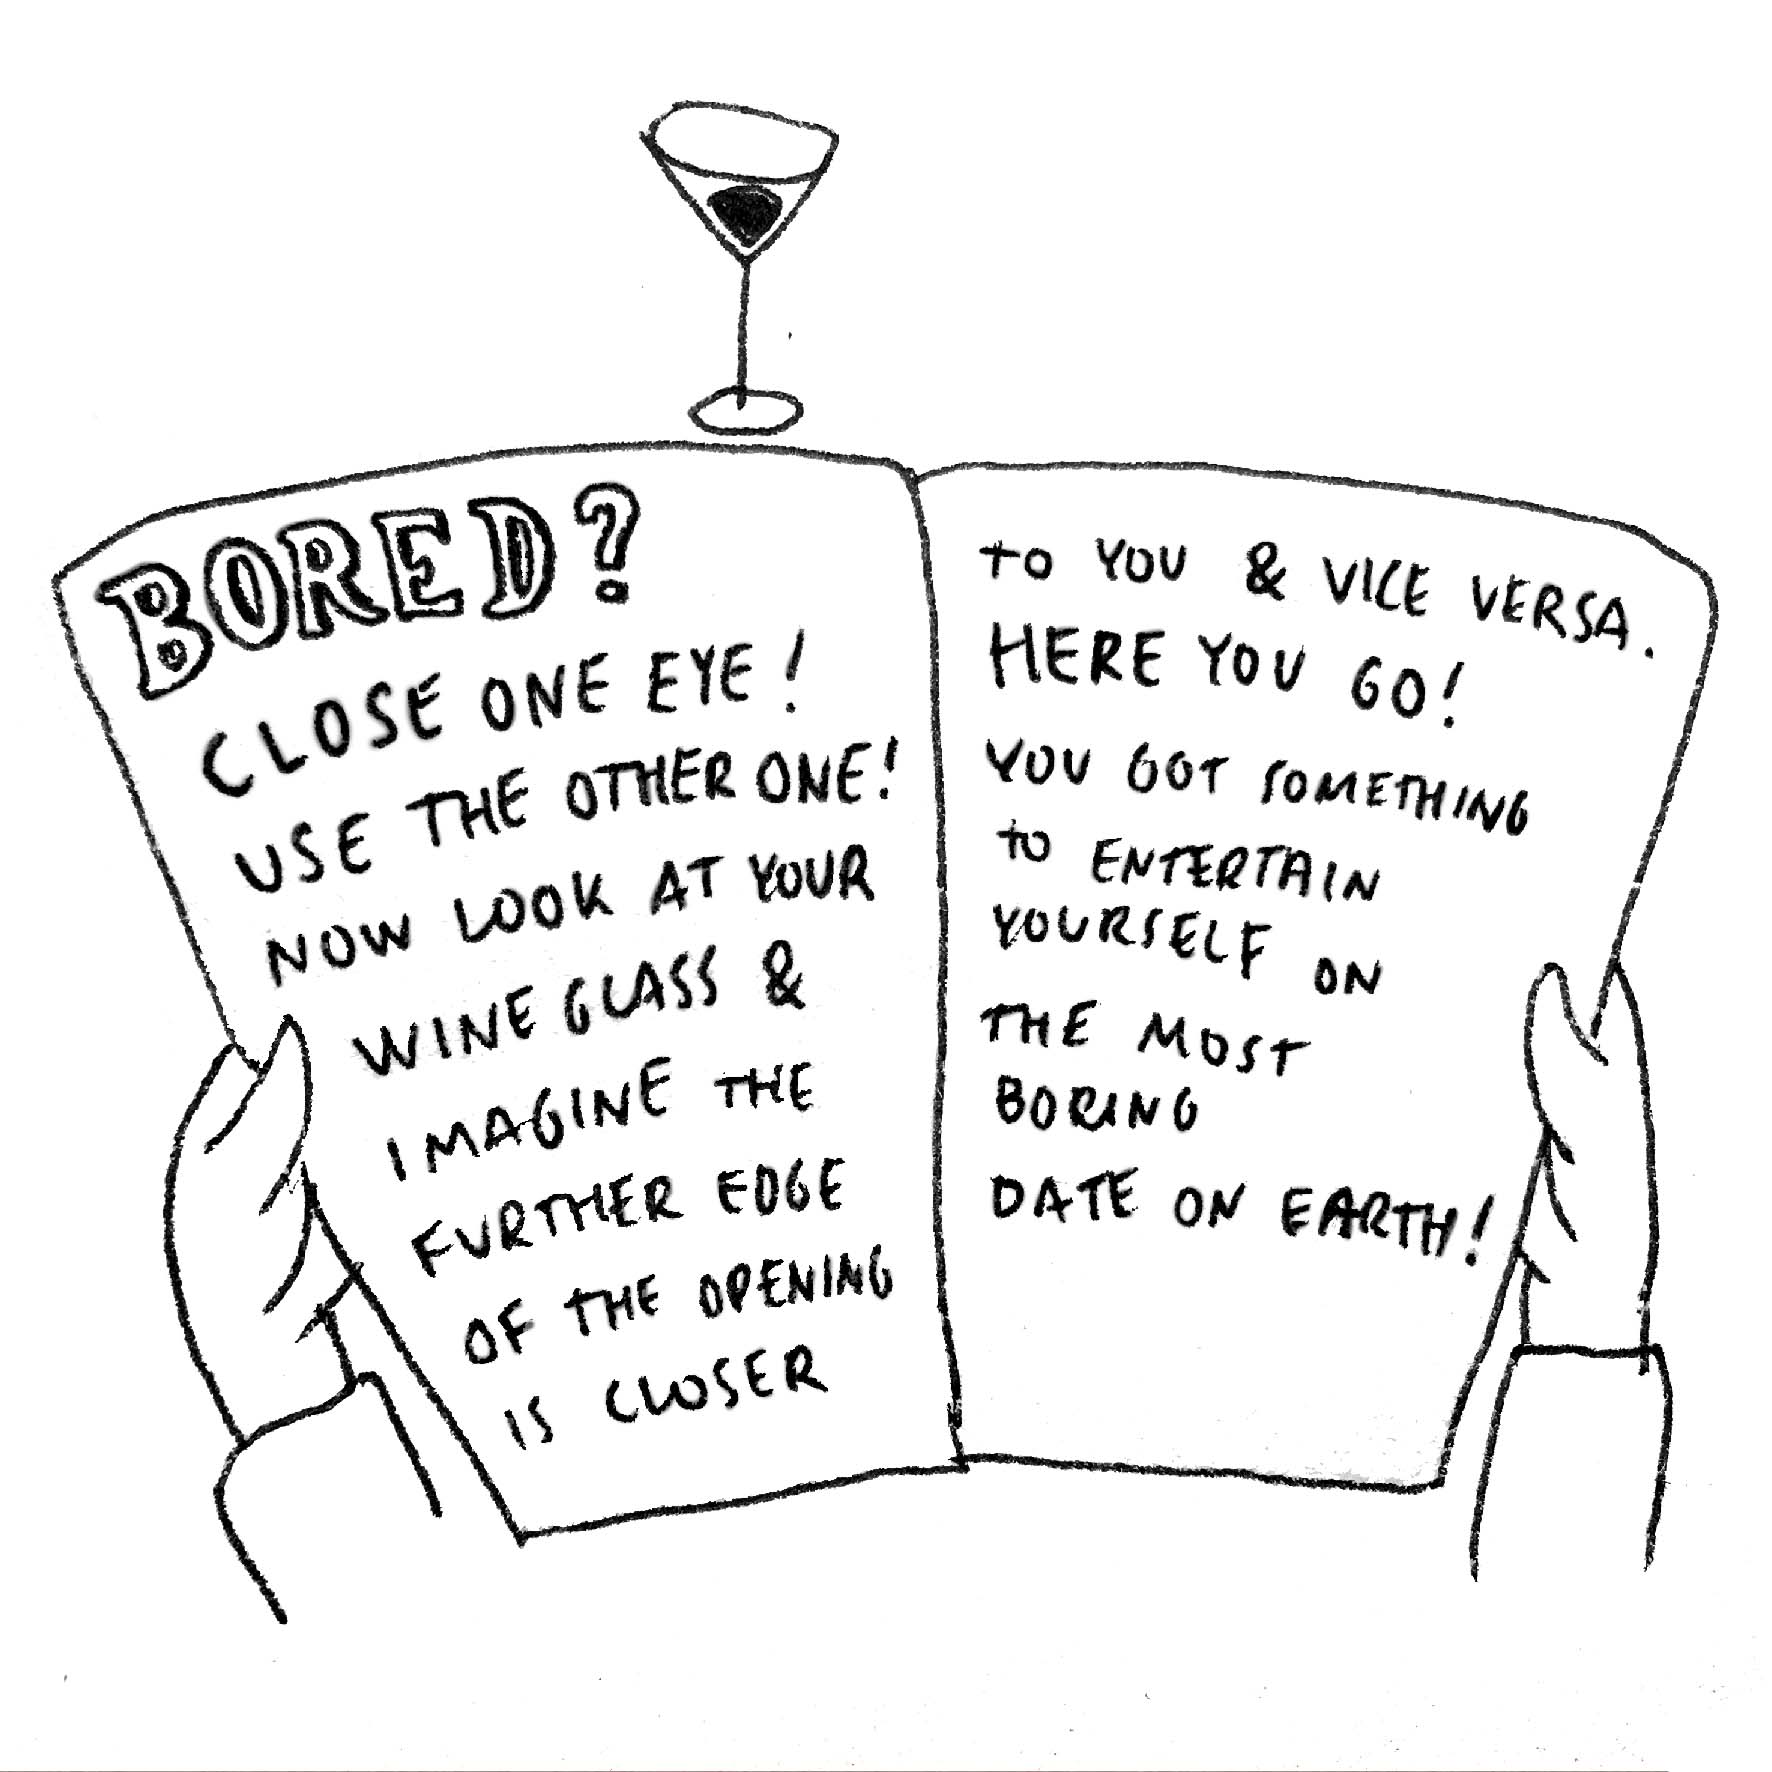 BORED?
CLOSE ONE EYE!
USE THE OTHER ONE!
NOW LOOK AT YOUR
WINE GLASS &
IMAGINE THE
FURTHER EDGE
OF THE OPENING
IS CLOSER
TO YOU & VICE VERSA.
HERE YOU GO!
YOU GOT SOMETHING
TO ENTERTAIN
YOURSELF ON
THE MOST
BORING
DATE ON EARTH!